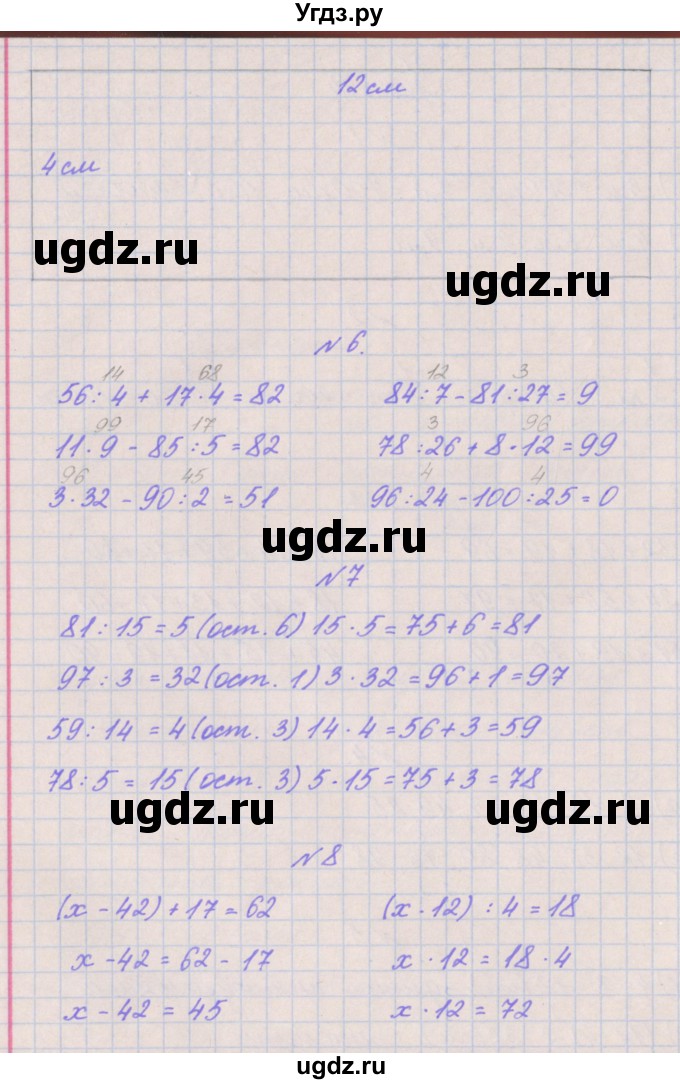 Угдз.ру
12 см
4 см
ugdz.ru
ugdz.ru
№ 6.
14 68 12 3
56 : 4 + 17 · 4 = 82 84 : 7 - 81 : 27 = 9
99 17 3 96
11 · 9 - 85 : 5 = 82 78 : 26 + 8 · 12 = 99
96 45 4 4
3 · 32 - 90 : 2 = 51 96 : 24 - 100 : 25 = 0
ugdz.ru
№ 7
81 : 15 = 5 (ост. 6) 15 · 5 = 75 + 6 = 81
97 : 3 = 32 (ост. 1) 3 · 32 = 96 + 1 = 97
59 : 14 = 4 (ост. 3) 14 · 4 = 56 + 3 = 59
78 : 5 = 15 (ост. 3) 5 · 15 = 75 + 3 = 78
ugdz.ru ugdz.ru
№ 8
(x - 42) + 17 = 62 (x · 12) : 4 = 18
x - 42 = 62 - 17 x · 12 = 18 · 4
x - 42 = 45 x · 12 = 72
ugdz.ru